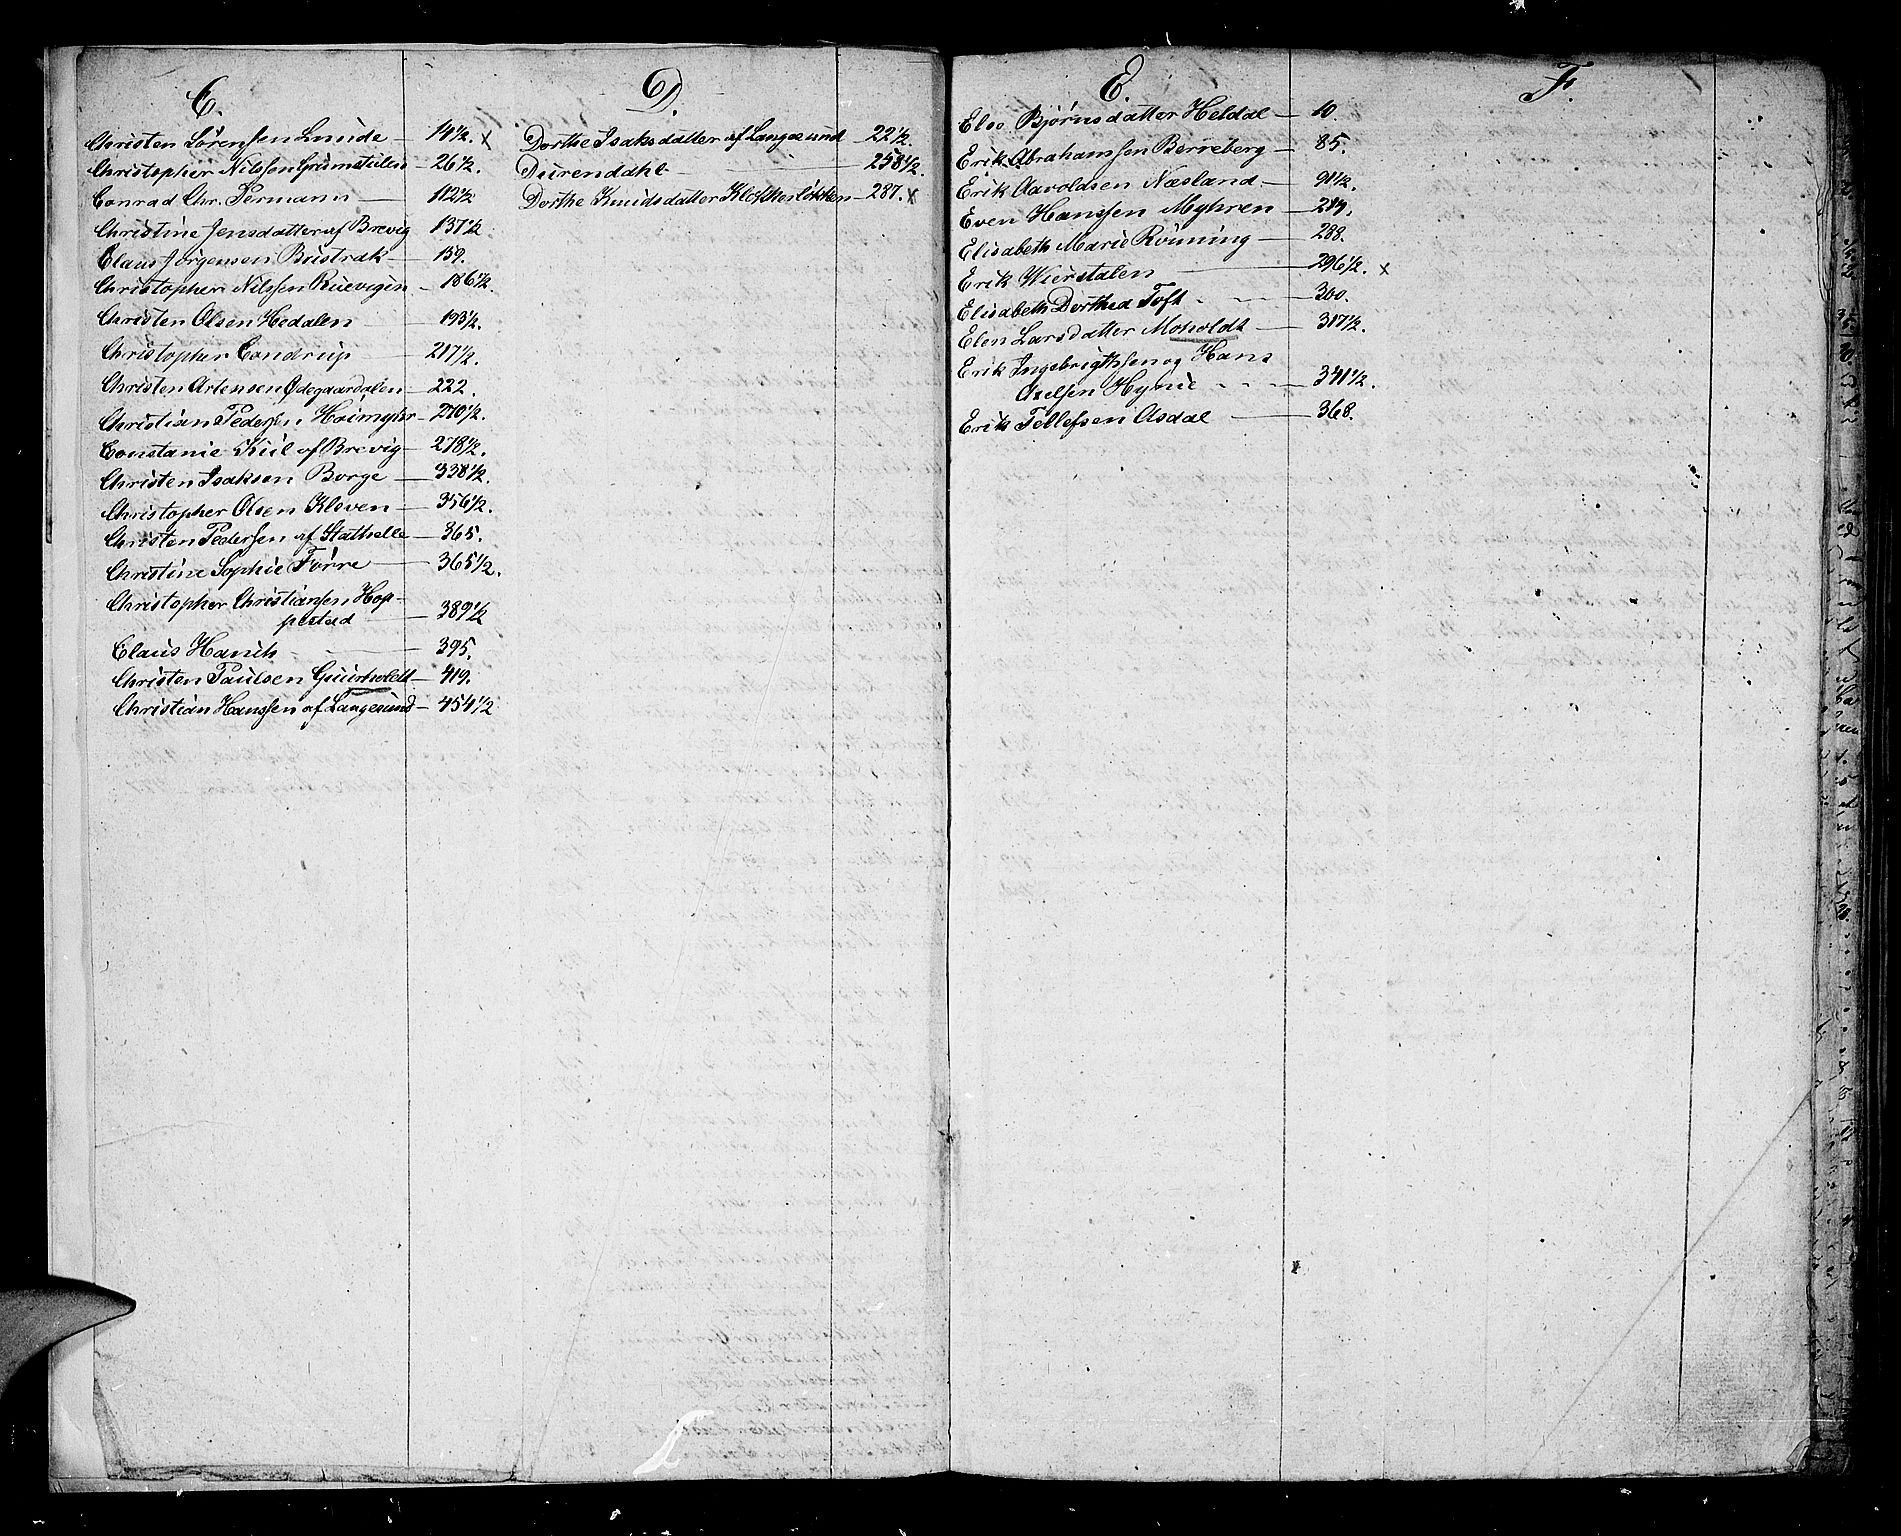 C.
Christen Sørensen Lunde — 14 1/2. x
Christopher Nilssen Grimstulen — 26 1/2.
Conrad Chr. Permann — 112 1/2
Christine Jensdatter af Brevig 137 1/2
Claus Jørgensen Bustrak — 159.
Christopher Nilssen Ruevigen — 186 1/2.
Christen Olsen Hedalen — 193 1/2.
Christopher Condrup — 217 1/2.
Christen Artensen Ødegaardalen — 222.
Christian Pedersen Haimyhr — 270 1/2.
Constanie Kiil af Brevig — 278 1/2.
Christen Isaksen Borge — 338 1/2.
Christopher Olsen Kleven — 356 1/2.
Christen Pedersen af Stathelle — 365.
Christine Sophie Førre — 365 1/2.
Christopher Christiansen Hop-
pestad — 389 1/2
Claus Hanch — 395.
Christen Paulsen Guurholdt — 419.
Christian Hanssen af Langesund — 454 1/2
D.
Dorthe Isaksdatter af Langesund 22 1/2.
Durendahl — 258 1/2.
Dorthe Knudsdatter Klokkerløkken — 287. x
E.
Elso Bjørnsdatter Heldal — 10.
Erik Abrahamssen Berreberg — 85.
Erik Aavoldsen Næsland — 91 1/2.
Even Hanssen Myhren — 214.
Elisabeth Marie Rønning — 288.
Erik Wierstalen — 296 1/2. x
Elisabeth Dorthea Toft — 300.
Elen Larsdatter Moholdt — 317 1/2.
Erik Ingebrigthsen og Hans
Axelsen Hynie — 341 1/2.
Erik Tellefsen Asdal — 368.
F.